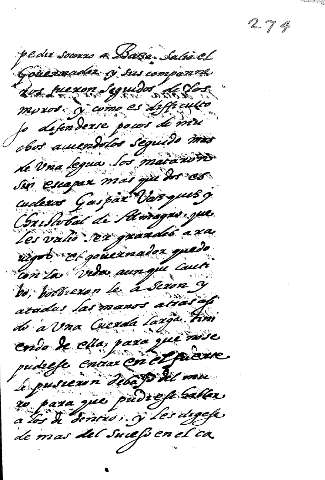 274
pedir socorro a Baza. Salio el
Governador y sus compañe
ros fueron seguidos de los
moros, y como es dificulto
so defenderse pocos de mu
chos aviendolos seguido mas
de una legua los mataron
sin escapar mas que dos es
cuderos Gaspar Vazquez y
Christobal de Almagro, que
les valio ser grandes ara
vigos. el governador quedo
con la vida, aunque cauti
vo, bolvieron le a Seron y
atadas las manos atras as
do a una cuerda larga, tini
endo de ella, para que no se
pudiese entrar en el fuerte
le pusieron debajo del mu
ro, para que pudiese hablar
a los de dentro, y les dijese
de mas del suceso en el ca